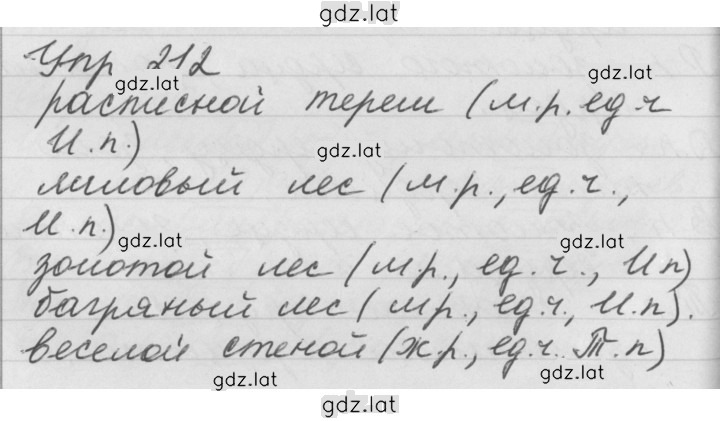 gdz.lat
Упр 212
gdz.lat gdz.lat
расписной терем (м.р. ед.ч
И.п.)
gdz.lat
лиловый лес (м.р., ед.ч.,
И.п.)
gdz.lat gdz.lat
золотой лес (м.р., ед.ч., И.п)
багряный лес (м.р., ед.ч, И.п).
веселой стеной (ж.р., ед.ч. Т.п)
gdz.lat gdz.lat
gdz.lat